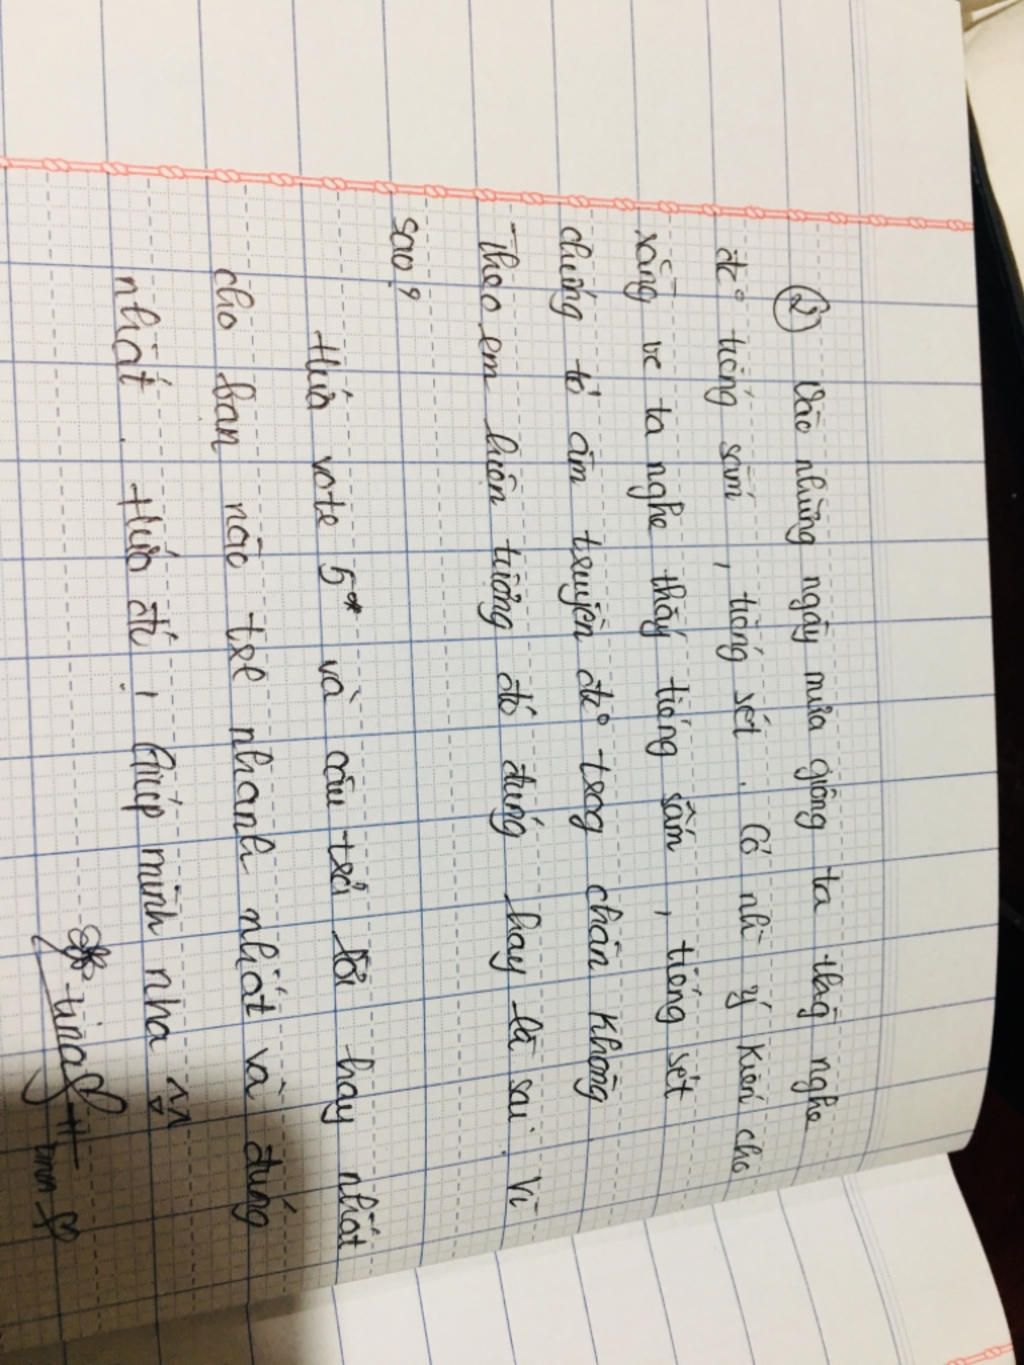 ② Vào những ngày mưa giông ta thg nghe
đc tiếng sấm, tiếng sét. Có nhì ý kiến cho
rằng vc ta nghe thấy tiếng sấm, tiếng sét
chứng tỏ âm truyền đc trog chân không
Theo em hiện tượng đó đúng hay là sai. Vì
sao?
Hứa vote 5* và câu trả lời hay nhất
cho bạn nào trl nhanh nhất và đúng
nhất. Hứa đấy, giúp mình nha